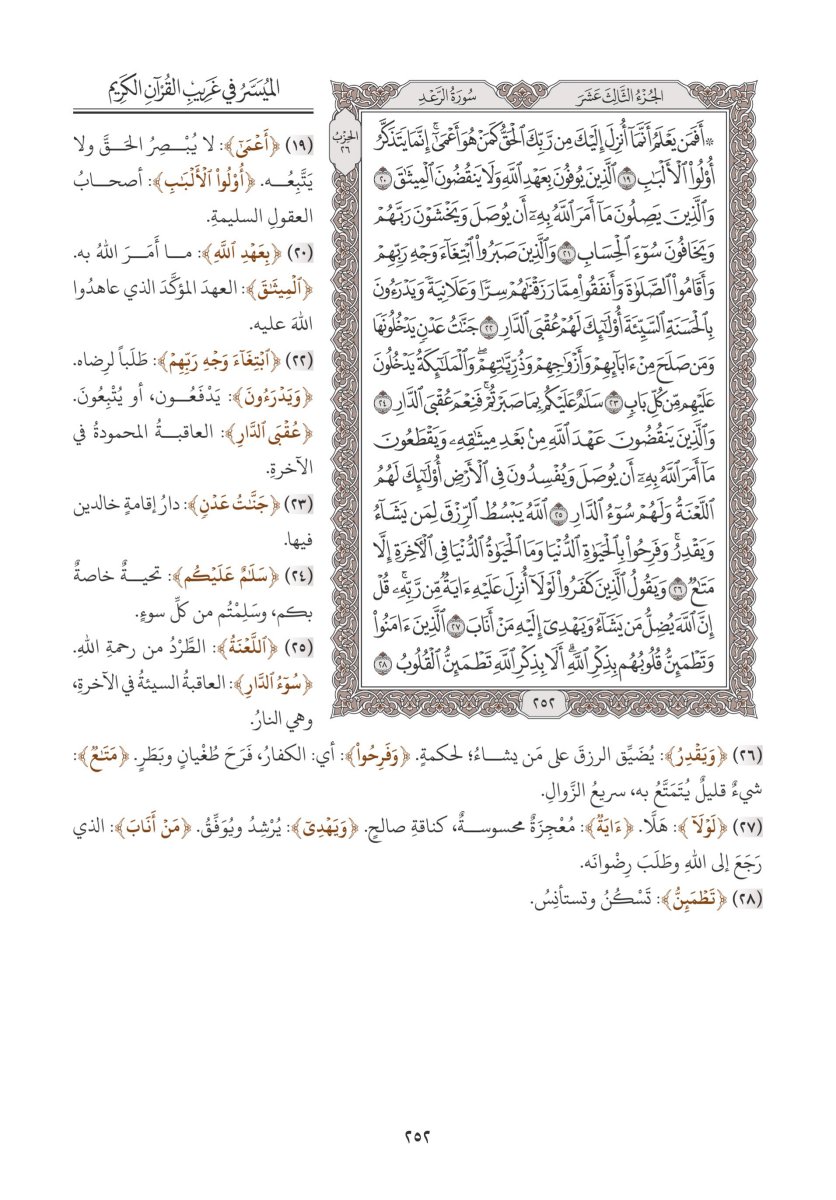 الجُزْءُ الثَّالِثَ عَشَرَ
سُورَةُ الرَّعْدِ
الحِزْبُ
٢٦
۞ أَفَمَن يَعْلَمُ أَنَّمَآ أُنزِلَ إِلَيْكَ مِن رَّبِّكَ ٱلْحَقُّ كَمَنْ هُوَ أَعْمَىٰٓۚ إِنَّمَا يَتَذَكَّرُ
أُوْلُواْ ٱلْأَلْبَٰبِ ١٩ ٱلَّذِينَ يُوفُونَ بِعَهْدِ ٱللَّهِ وَلَا يَنقُضُونَ ٱلْمِيثَٰقَ ٢٠
وَٱلَّذِينَ يَصِلُونَ مَآ أَمَرَ ٱللَّهُ بِهِۦٓ أَن يُوصَلَ وَيَخْشَوْنَ رَبَّهُمْ
وَيَخَافُونَ سُوٓءَ ٱلْحِسَابِ ٢١ وَٱلَّذِينَ صَبَرُواْ ٱبْتِغَآءَ وَجْهِ رَبِّهِمْ
وَأَقَامُواْ ٱلصَّلَوٰةَ وَأَنفَقُواْ مِمَّا رَزَقْنَٰهُمْ سِرًّا وَعَلَانِيَةً وَيَدْرَءُونَ
بِٱلْحَسَنَةِ ٱلسَّيِّئَةَ أُوْلَٰٓئِكَ لَهُمْ عُقْبَى ٱلدَّارِ ٢٢ جَنَّٰتُ عَدْنٍ يَدْخُلُونَهَا
وَمَن صَلَحَ مِنْ ءَابَآئِهِمْ وَأَزْوَٰجِهِمْ وَذُرِّيَّٰتِهِمْۖ وَٱلْمَلَٰٓئِكَةُ يَدْخُلُونَ
عَلَيْهِم مِّن كُلِّ بَابٍ ٢٣ سَلَٰمٌ عَلَيْكُم بِمَا صَبَرْتُمْۚ فَنِعْمَ عُقْبَى ٱلدَّارِ ٢٤
وَٱلَّذِينَ يَنقُضُونَ عَهْدَ ٱللَّهِ مِنۢ بَعْدِ مِيثَٰقِهِۦ وَيَقْطَعُونَ
مَآ أَمَرَ ٱللَّهُ بِهِۦٓ أَن يُوصَلَ وَيُفْسِدُونَ فِي ٱلْأَرْضِ أُوْلَٰٓئِكَ لَهُمُ
ٱللَّعْنَةُ وَلَهُمْ سُوٓءُ ٱلدَّارِ ٢٥ ٱللَّهُ يَبْسُطُ ٱلرِّزْقَ لِمَن يَشَآءُ
وَيَقْدِرُۚ وَفَرِحُواْ بِٱلْحَيَوٰةِ ٱلدُّنْيَا وَمَا ٱلْحَيَوٰةُ ٱلدُّنْيَا فِي ٱلْأٓخِرَةِ إِلَّا
مَتَٰعٌ ٢٦ وَيَقُولُ ٱلَّذِينَ كَفَرُواْ لَوْلَآ أُنزِلَ عَلَيْهِ ءَايَةٌ مِّن رَّبِّهِۦۚ قُلْ
إِنَّ ٱللَّهَ يُضِلُّ مَن يَشَآءُ وَيَهْدِيٓ إِلَيْهِ مَنْ أَنَابَ ٢٧ ٱلَّذِينَ ءَامَنُواْ
وَتَطْمَئِنُّ قُلُوبُهُم بِذِكْرِ ٱللَّهِۗ أَلَا بِذِكْرِ ٱللَّهِ تَطْمَئِنُّ ٱلْقُلُوبُ ٢٨
٢٥٢
المُيَسَّرُ في غَرِيبِ القُرْآنِ الكَرِيم
(١٩) ﴿أَعْمَىٰٓ﴾: لا يُبْصِرُ الحَقَّ ولا
يَتَّبِعُه. ﴿أُوْلُواْ ٱلْأَلْبَٰبِ﴾: أصحابُ
العقولِ السليمةِ.
(٢٠) ﴿بِعَهْدِ ٱللَّهِ﴾: ما أَمَرَ اللهُ به.
﴿ٱلْمِيثَٰقَ﴾: العهدَ المؤكَّدَ الذي عاهدُوا
اللهَ عليه.
(٢٢) ﴿ٱبْتِغَآءَ وَجْهِ رَبِّهِمْ﴾: طَلَباً لرِضاه.
﴿وَيَدْرَءُونَ﴾: يَدْفَعُون، أو يُتْبِعُونَ.
﴿عُقْبَى ٱلدَّارِ﴾: العاقبةُ المحمودةُ في
الآخرةِ.
(٢٣) ﴿جَنَّٰتُ عَدْنٍ﴾: دارُ إقامةٍ خالدين
فيها.
(٢٤) ﴿سَلَٰمٌ عَلَيْكُم﴾: تحيةٌ خاصةٌ
بكم، وسَلِمْتُم من كلِّ سوءٍ.
(٢٥) ﴿ٱللَّعْنَةُ﴾: الطَّرْدُ من رحمةِ اللهِ.
﴿سُوٓءُ ٱلدَّارِ﴾: العاقبةُ السيئةُ في الآخرةِ،
وهي النارُ.
(٢٦) ﴿وَيَقْدِرُ﴾: يُضَيِّق الرزقَ على مَن يشاءُ؛ لحكمةٍ. ﴿وَفَرِحُواْ﴾: أي: الكفارُ، فَرَحَ طُغْيانٍ وبَطَرٍ. ﴿مَتَٰعٌ﴾:
شيءٌ قليلٌ يُتَمَتَّعُ به، سريعُ الزَّوالِ.
(٢٧) ﴿لَوْلَآ﴾: هَلَّا. ﴿ءَايَةٌ﴾: مُعْجِزَةٌ محسوسةٌ، كناقةِ صالحٍ. ﴿وَيَهْدِيٓ﴾: يُرْشِدُ ويُوَفِّقُ. ﴿مَنْ أَنَابَ﴾: الذي
رَجَعَ إلى اللهِ وطَلَبَ رِضْوانَه.
(٢٨) ﴿تَطْمَئِنُّ﴾: تَسْكُنُ وتستأنِسُ.
٢٥٢